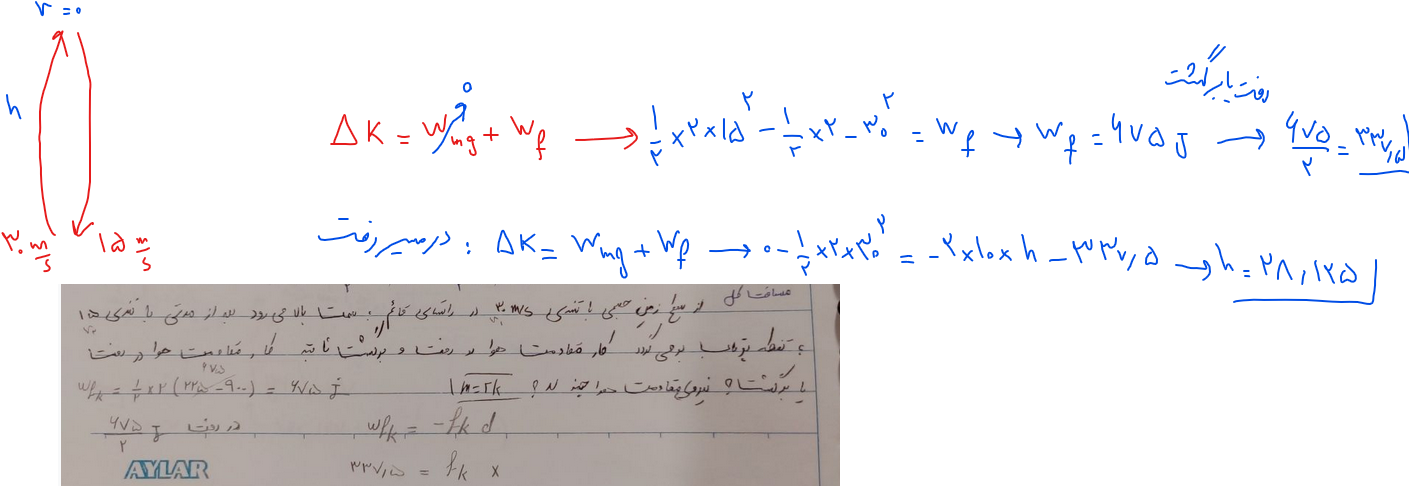 v = 0
h
۳۰ m/s
۱۵ m/s
رفت یا برگشت
ΔK = W_mg + W_f → ½ × ۲ × ۱۵^۲ − ½ × ۲ − ۳۰^۲ = W_f → W_f = ۶۷۵ J → ۶۷۵/۲ = ۳۳۷,۵
در مسیر رفت : ΔK = W_mg + W_f → ۰ − ½ × ۲ × ۳۰^۲ = −۲ × ۱۰ × h − ۳۳۷,۵ → h = ۲۸,۱۲۵
مسافت کل
از سطح زمین جسمی با تندی ۳۰ m/s در راستای قائم به سمت بالا می رود بعد از مدتی با تندی ۱۵
به نقطه پرتاب برمی گردد کار مقاومت هوا در رفت و برگشت ثابته کار مقاومت هوا در رفت
یا برگشت؟ نیروی مقاومت هوا چند بود؟ m=۲k
Wf_k = ½ × ۲ (۲۲۵ − ۹۰۰) = ۶۷۵ J
۶۷۵/۲ J در رفت
Wf_k = −f_k d
۳۳۷,۵ = f_k ×
AYLAR